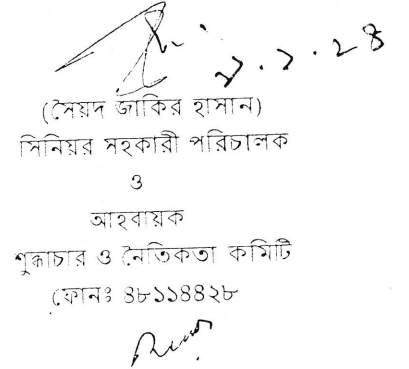 (সৈয়দ জাকির হাসান)
সিনিয়র সহকারী পরিচালক
ও
আহবায়ক
শুদ্ধাচার ও নৈতিকতা কমিটি
ফোনঃ ৪৮১১৪৪২৮